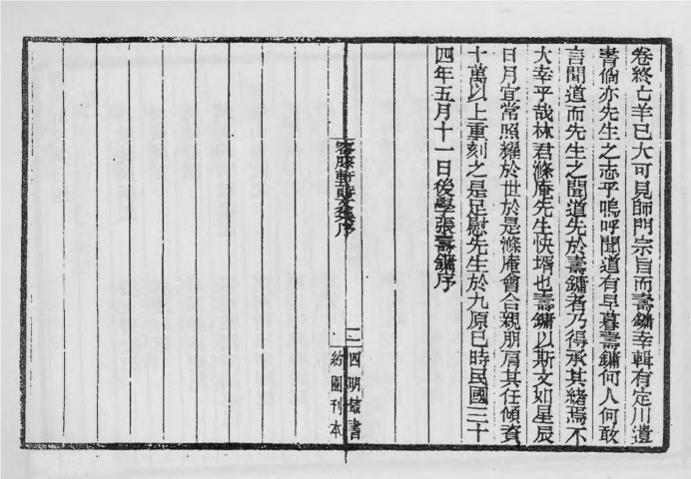 卷終亡羊已大可見師門宗旨而壽鏞幸輯有定川遺
書倘亦先生之志乎嗚呼聞道有早暮壽鏞何人何敢
言聞道而先生之聞道先於壽鏞者乃得承其緒焉不
大幸乎哉林君滌庵先生快壻也壽鏞以斯文如星辰
日月宜常照耀於世於是滌庵會合親朋肩其任傾資
十萬以上重刻之是足慰先生於九原已時民國三十
四年五月十一日後學張壽鏞序
容膝軒文集序
二
四明叢書
約園刊本